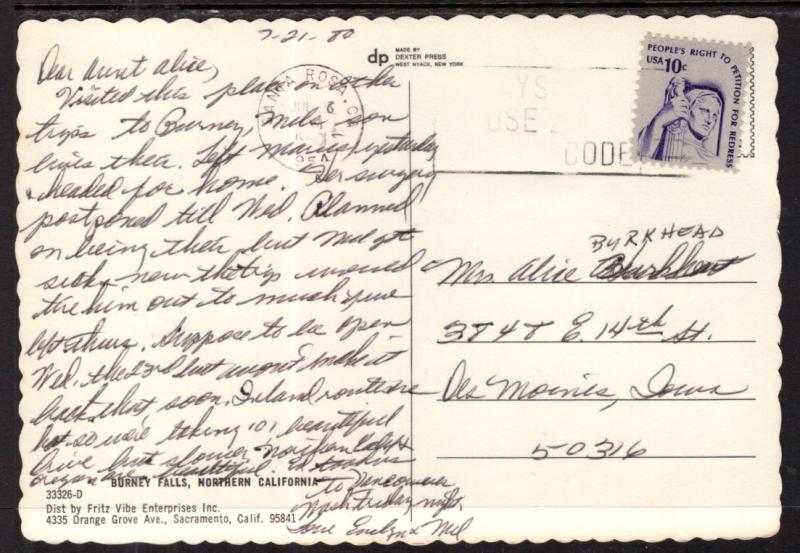 7-21-80
dp
MADE BY
DEXTER PRESS
WEST NYACK, NEW YORK
PEOPLE'S RIGHT TO PETITION FOR REDRESS
USA 10c
SANTA ROSA, CA
USE
CODE
Dear Aunt Alice,
Visited this place on other
trips to Burney, Mels son
lives there. Left yesterday
& headed for home. surgery
postponed till Wed. Planned
on being there, but Mel got
sick, now the trip
him out to much
Thurs. Suppose to be open
Wed. the 23rd but won't make it
back that soon. Inland routes are
hot so we're taking 101 beautiful
drive but slower. Northern Calif &
Oregon are beautiful.
to Vancouver
Wash Friday night.
Love Evelyn & Mel
BURKHEAD
Mrs. Alice
3848 E. 14th St.
Des Moines, Iowa
50316
BURNEY FALLS, NORTHERN CALIFORNIA
33326-D
Dist by Fritz Vibe Enterprises Inc.
4335 Orange Grove Ave., Sacramento, Calif. 95841